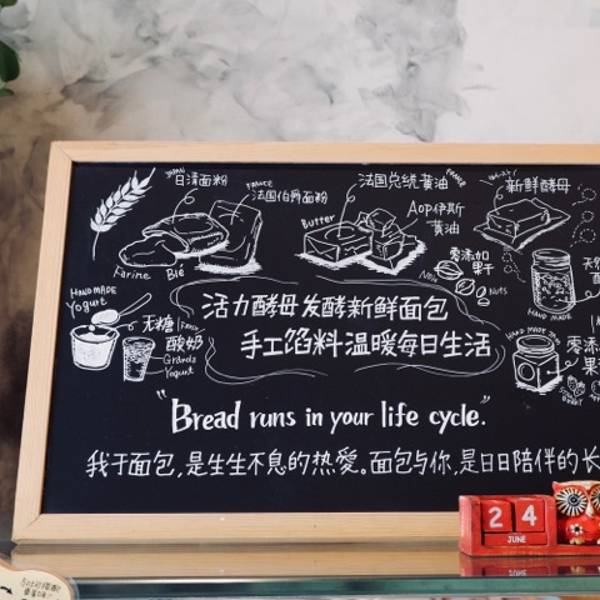 JAPAN
日清面粉
FRANCE
法国伯爵面粉
法国总统黄油
FRANCE
新鲜酵母
Butter
AOP伊斯
黄油
Farine Blé
零添加
果干
Nuts
HAND MADE
Yogurt
无糖
酸奶
Granola
Yogurt
HAND MADE
HAND MADE JAM
零添
活力酵母发酵新鲜面包
手工馅料温暖每日生活
"Bread runs in your life cycle."
我于面包,是生生不息的热爱。面包与你,是日日陪伴的长
24
JUNE